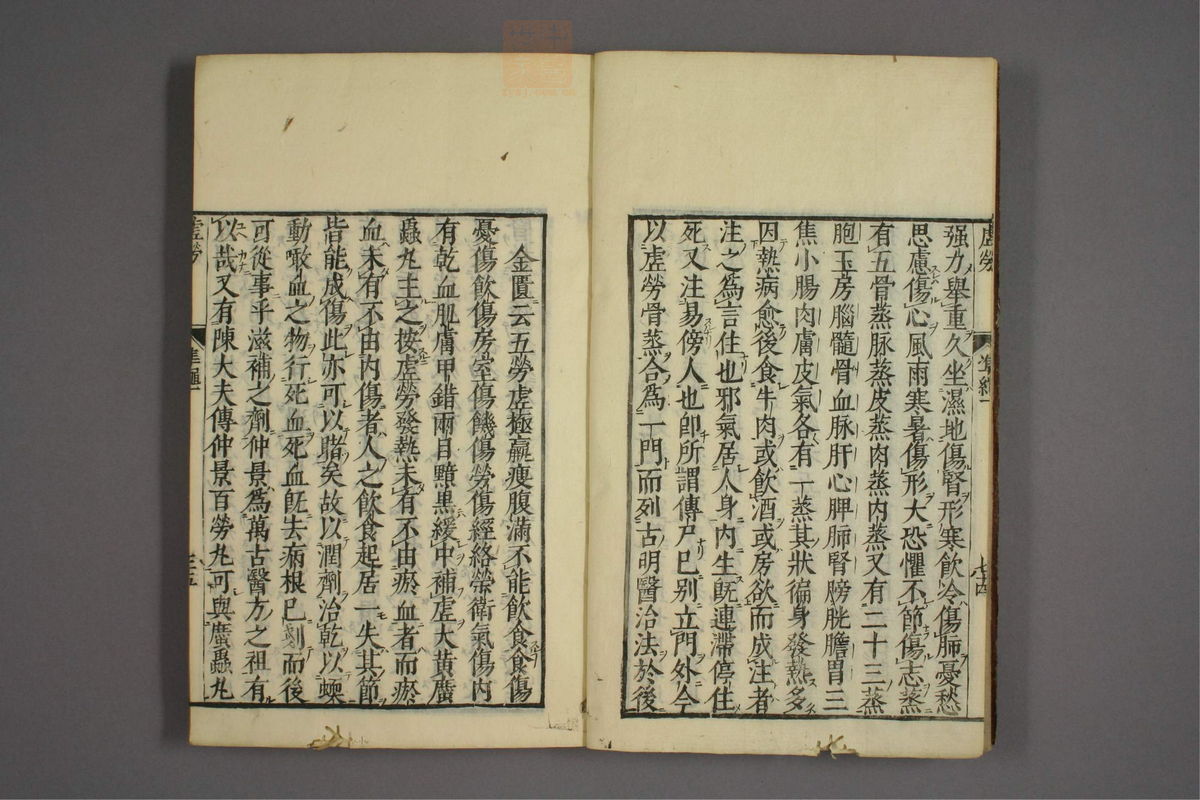 强力舉重久坐濕地傷腎形寒飲冷傷肺憂愁
思慮傷心風雨寒暑傷形大恐懼不節傷志蒸
有五骨蒸脉蒸皮蒸肉蒸内蒸又有二十三蒸
胞玉房腦髓骨血脉肝心脾肺腎膀胱膽胃三
焦小腸肉膚皮氣各有一蒸其狀徧身發熱多
因熱病愈後食牛肉或飲酒或房欲而成注者
注之爲言住也邪氣居人身内生既連滯停住
死又注易傍人也卽所謂傳尸已别立門外今
以虚勞骨蒸合爲一門而列古明醫治法於後
虚勞
準繩一
七十四
金匱云五勞虚極羸瘦腹滿不能飲食食傷
憂傷飲傷房室傷饑傷勞傷經絡榮衛氣傷内
有乾血肌膚甲錯兩目黯黒緩中補虚大黄䗪
蟲丸主之按虚勞發熱未有不由瘀血者而瘀
血未有不由内傷者人之飲食起居一失其節
皆能成傷此亦可以睹矣故以潤劑治乾以蝡
動噉血之物行死血死血既去病根已剗而後
可從事乎滋補之劑仲景爲萬古醫方之祖有
以哉又有陳大夫傳仲景百勞丸可與䗪蟲丸
虚勞
準繩一